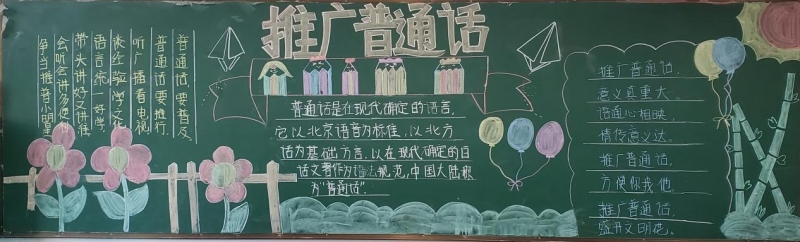 推广普通话
普通话要普及
普通话要推行
听广播看电视
语言统一好学
带头讲好又讲准
会听会讲多使用
争当推普小明星
普通话是在现代确定的语言，
它以北京语音为标准，以北方
话为基础方言，以在现代确定的白
话文著作为语法规范，中国大陆称
为“普通话”
推广普通话，
意义真重大。
语通心相映，
情传意义达。
推广普通话，
方便你我他。
推广普通话，
盛开文明花。